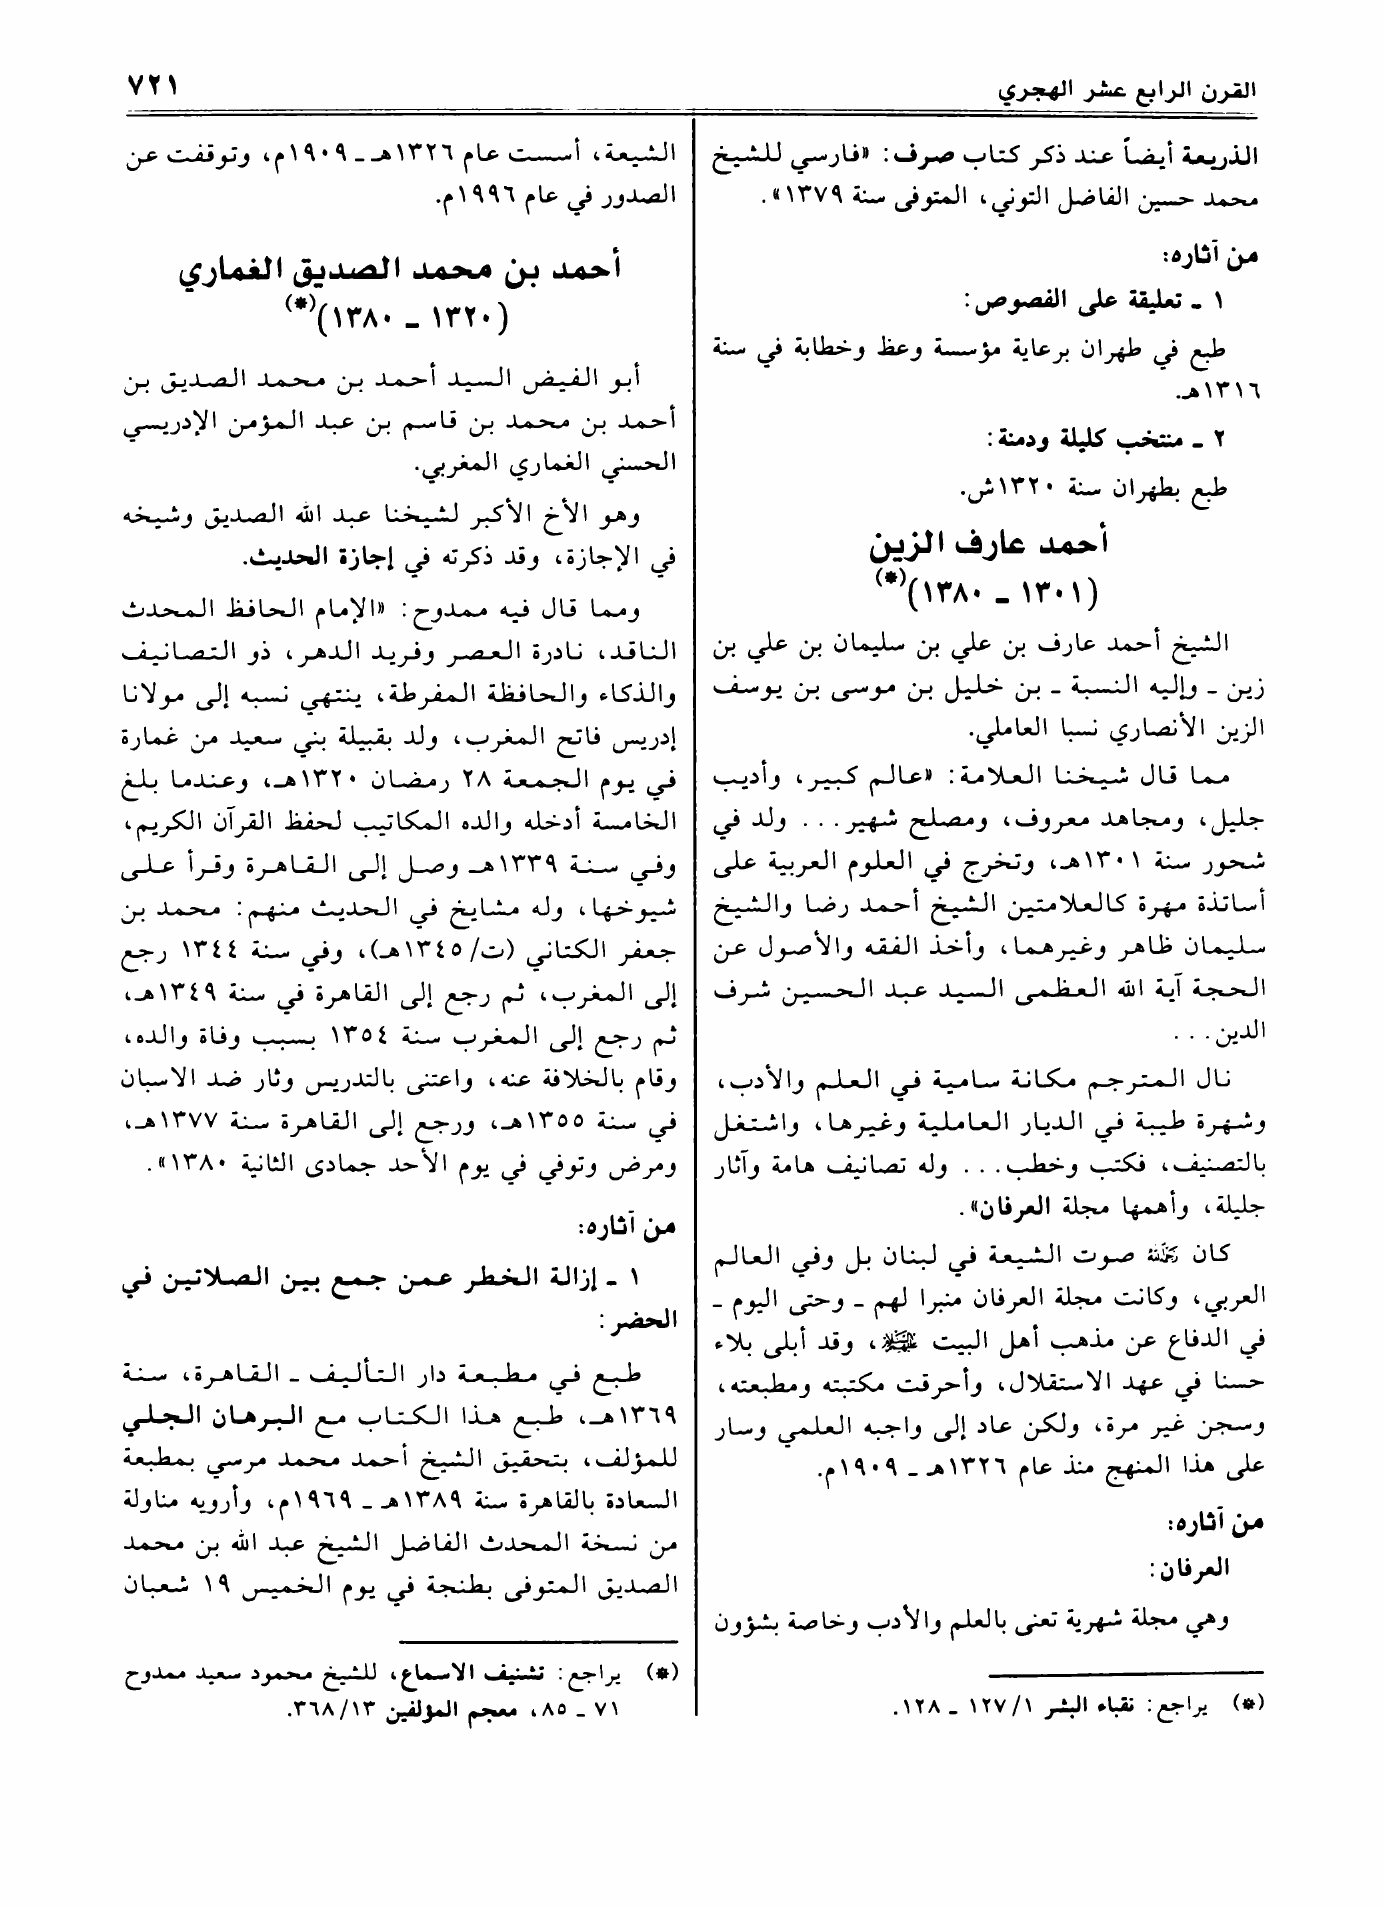 القرن الرابع عشر الهجري
٧٢١
الذريعة أيضاً عند ذكر كتاب صرف: «فارسي للشيخ
محمد حسين الفاضل التوني، المتوفى سنة ١٣٧٩».
من آثاره:
١ ـ تعليقة على الفصوص:
طبع في طهران برعاية مؤسسة وعظ وخطابة في سنة
١٣١٦هـ.
٢ ـ منتخب كليلة ودمنة:
طبع بطهران سنة ١٣٢٠ش.
أحمد عارف الزين
(١٣٠١ ـ ١٣٨٠)(*)
الشيخ أحمد عارف بن علي بن سليمان بن علي بن
زين ـ وإليه النسبة ـ بن خليل بن موسى بن يوسف
الزين الأنصاري نسبا العاملي.
مما قال شيخنا العلامة: «عالم كبير، وأديب
جليل، ومجاهد معروف، ومصلح شهير... ولد في
شحور سنة ١٣٠١هـ، وتخرج في العلوم العربية على
أساتذة مهرة كالعلامتين الشيخ أحمد رضا والشيخ
سليمان ظاهر وغيرهما، وأخذ الفقه والأصول عن
الحجة آية الله العظمى السيد عبد الحسين شرف
الدين...
نال المترجم مكانة سامية في العلم والأدب،
وشهرة طيبة في الديار العاملية وغيرها، واشتغل
بالتصنيف، فكتب وخطب... وله تصانيف هامة وآثار
جليلة، وأهمها مجلة العرفان».
كان رحمه الله صوت الشيعة في لبنان بل وفي العالم
العربي، وكانت مجلة العرفان منبرا لهم ـ وحتى اليوم ـ
في الدفاع عن مذهب أهل البيت، وقد أبلى بلاء
حسنا في عهد الاستقلال، وأحرقت مكتبته ومطبعته،
وسجن غير مرة، ولكن عاد إلى واجبه العلمي وسار
على هذا المنهج منذ عام ١٣٢٦هـ ـ ١٩٠٩م.
من آثاره:
العرفان:
وهي مجلة شهرية تعنى بالعلم والأدب وخاصة بشؤون
(*) يراجع: نقباء البشر ١/ ١٢٧ ـ ١٢٨.
الشيعة، أسست عام ١٣٢٦هـ ـ ١٩٠٩م، وتوقفت عن
الصدور في عام ١٩٩٦م.
أحمد بن محمد الصديق الغماري
(١٣٢٠ ـ ١٣٨٠)(*)
أبو الفيض السيد أحمد بن محمد الصديق بن
أحمد بن محمد بن قاسم بن عبد المؤمن الإدريسي
الحسني الغماري المغربي.
وهو الأخ الأكبر لشيخنا عبد الله الصديق وشيخه
في الإجازة، وقد ذكرته في إجازة الحديث.
ومما قال فيه ممدوح: «الإمام الحافظ المحدث
الناقد، نادرة العصر وفريد الدهر، ذو التصانيف
والذكاء والحافظة المفرطة، ينتهي نسبه إلى مولانا
إدريس فاتح المغرب، ولد بقبيلة بني سعيد من غمارة
في يوم الجمعة ٢٨ رمضان ١٣٢٠هـ، وعندما بلغ
الخامسة أدخله والده المكاتيب لحفظ القرآن الكريم،
وفي سنة ١٣٣٩هـ وصل إلى القاهرة وقرأ على
شيوخها، وله مشايخ في الحديث منهم: محمد بن
جعفر الكتاني (ت/ ١٣٤٥هـ)، وفي سنة ١٣٤٤ رجع
إلى المغرب، ثم رجع إلى القاهرة في سنة ١٣٤٩هـ،
ثم رجع إلى المغرب سنة ١٣٥٤ بسبب وفاة والده،
وقام بالخلافة عنه، واعتنى بالتدريس وثار ضد الاسبان
في سنة ١٣٥٥هـ، ورجع إلى القاهرة سنة ١٣٧٧هـ،
ومرض وتوفي في يوم الأحد جمادى الثانية ١٣٨٠».
من آثاره:
١ ـ إزالة الخطر عمن جمع بين الصلاتين في
الحضر:
طبع في مطبعة دار التأليف ـ القاهرة، سنة
١٣٦٩هـ، طبع هذا الكتاب مع البرهان الجلي
للمؤلف، بتحقيق الشيخ أحمد محمد مرسي بمطبعة
السعادة بالقاهرة سنة ١٣٨٩هـ ـ ١٩٦٩م، وأرويه مناولة
من نسخة المحدث الفاضل الشيخ عبد الله بن محمد
الصديق المتوفى بطنجة في يوم الخميس ١٩ شعبان
(*) يراجع: تشنيف الاسماع، للشيخ محمود سعيد ممدوح
٧١ ـ ٨٥، معجم المؤلفين ١٣/ ٣٦٨.